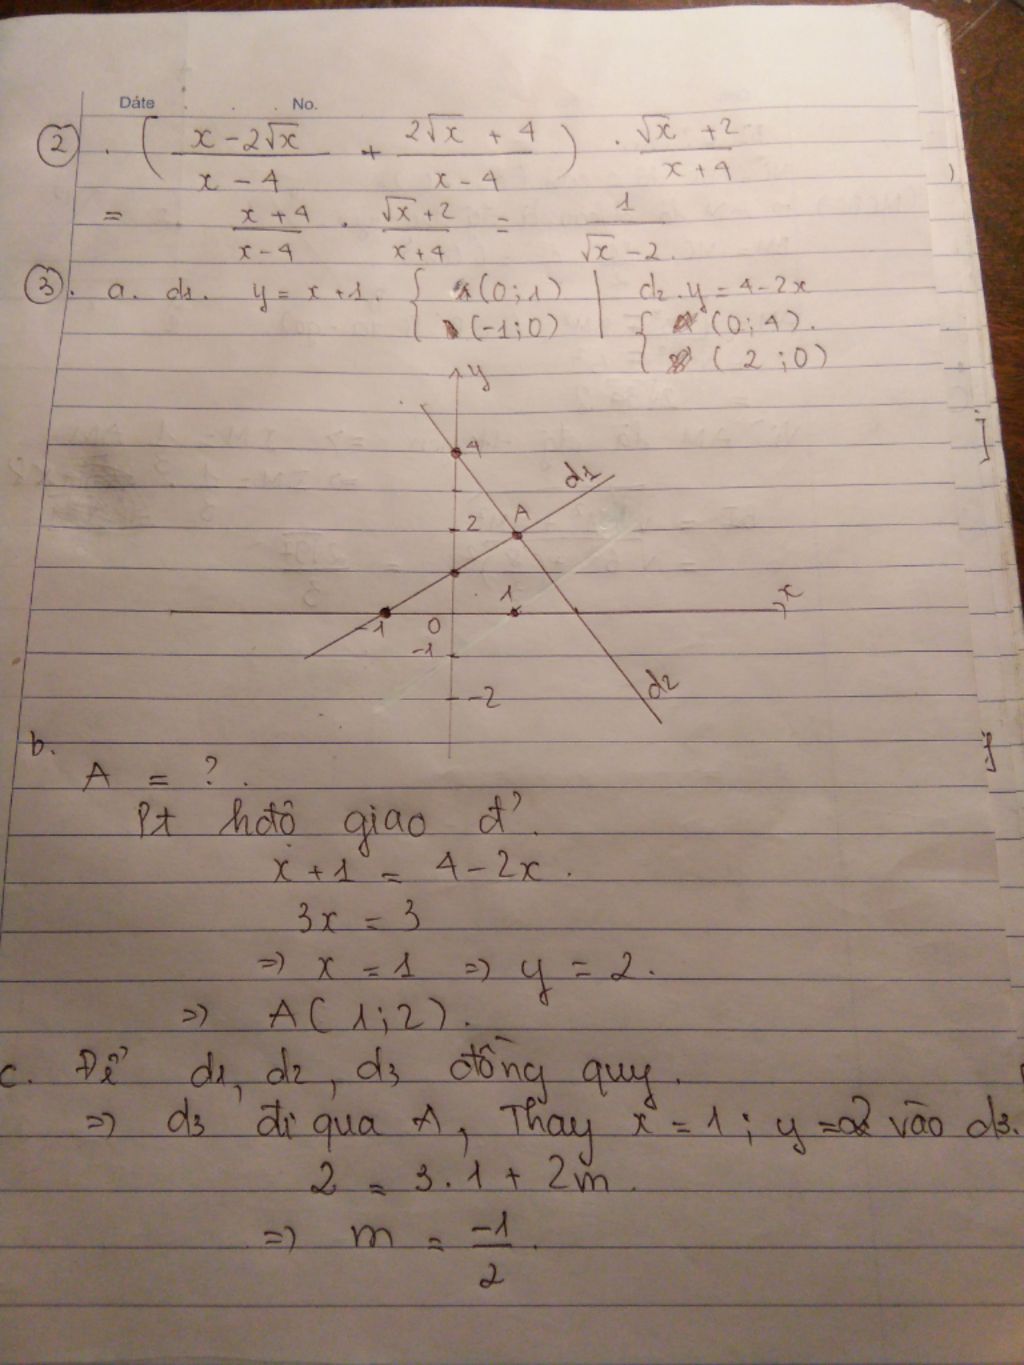 Date No.
② . ( (x - 2√x)/(x - 4) + (2√x + 4)/(x - 4) ) . (√x + 2)/(x + 4)
= (x + 4)/(x - 4) . (√x + 2)/(x + 4) = 1/(√x - 2).
③. a. d1. y = x + 1. { (0; 1) | d2. y = 4 - 2x
(-1; 0) { (0; 4).
( 2 ; 0)
y
4
d1
A
2
1
x
-1
0
-1
d2
-2
b.
A = ? .
Pt hđộ giao đ'.
x + 1 = 4 - 2x .
3x = 3
=> x = 1 => y = 2.
=> A( 1; 2).
c. Để d1, d2, d3 đồng quy.
=> d3 đi qua A, Thay x = 1 ; y = 2 vào d3.
2 = 3.1 + 2m.
=> m = -1/2.